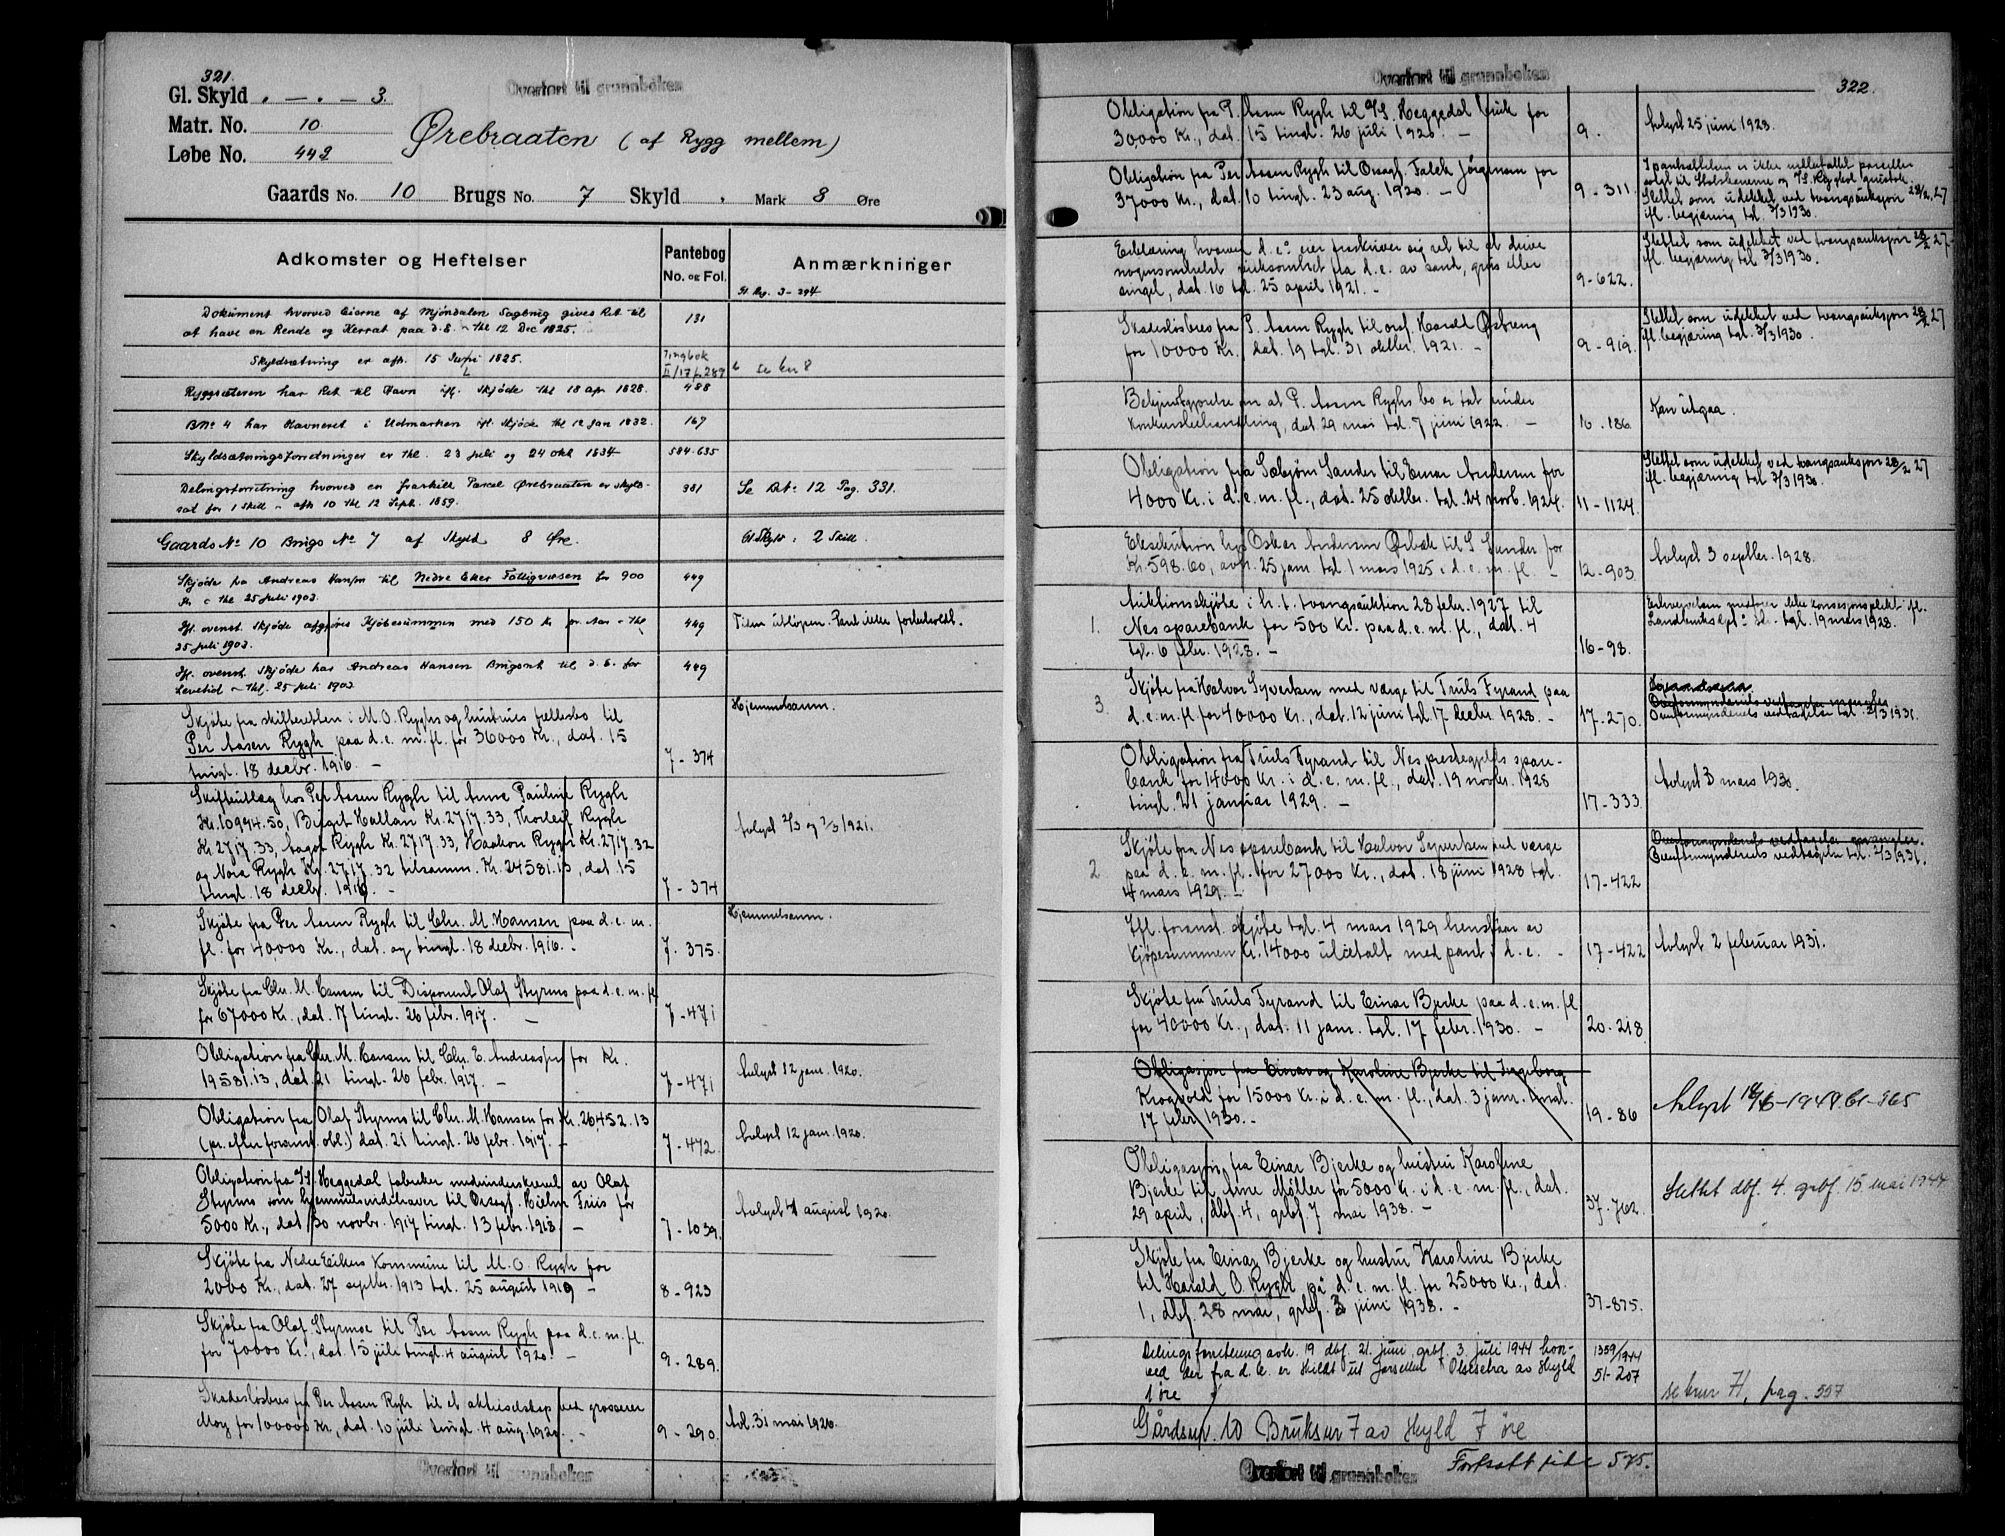 321.
Overført til grunnboken
Gl. Skyld . — . — 3.
Matr. No. 10
Løbe No. 442
Ørebraaten (af Rygg mellem)
Gaards No. 10 Brugs No. 7 Skyld . Mark 8 Øre
Adkomster og Heftelser
Pantebog No. og Fol.
Anmærkninger
Dokument hvorved Eierne af Mjøndalen Sagbrug gives Ret til 131
at have en Rende og Kerrat paa d. E. thl 12 Dec 1825.
Skyldsætning er afh. 15 Juni 1825. Tingbok II/17 f. 289 se bn 8
Ryggsæteren har Ret til Havn ifl. Skjøde thl 18 apr 1828. 488
BNo 4 har Havneret i Udmarken ifl Skjøde thl 12 Jan 1832. 167
Skyldsætningsforretninger er thl. 23 juli og 24 okt 1834 584.635
Delingsforretning hvorved en fraskilt Parcel Ørebraaten er skyld- 381 Se Bno 12 Pag. 331.
sat for 1 Skill afh 10 thl 12 Septb. 1859.
Gaards No 10 Brugs No 7 af Skyld 8 Øre. Gl Skyld: 2 Skill.
Skjøde fra Andreas Hansen til Nedre Eker Fattigvæsen for 900 449
Kr thl 25 Juli 1903.
Ifl. ovenst. Skjøde afgjøres Kjøbesummen med 150 Kr pr. Aar - thl 449
25 Juli 1903.
Ifl. ovenst. Skjøde har Andreas Hansen Brugsret til d. E. for 449
Levetid - thl. 25 Juli 1903
Skjøte fra skifteretten i M. O. Ryghs og hustrues fellesbo til Hjemmelsanm.
Per Aasen Rygh paa d. e. m. fl. for 36000 Kr., dat. 15
tingl. 18 decbr. 1916. — 7 - 374
Skifteutlæg hos Per Aasen Rygh til Anna Pauline Rygh
Kr. 10994.50, Birgit Hallan Kr. 2717.33, Thorleif Rygh
Kr. 2717.33, Aagot Rygh Kr. 2717.33, Haakon Rygh Kr. 2717.32 Avlyst 2/3 og 7/3 1921.
og Nora Rygh Kr. 2717.32 tilsamm. Kr. 24581.13, dat. 15
tingl. 18 decbr. 1916. - 7 - 374
Skjøte fra Per Aasen Rygh til Chr. M. Hansen paa d. e. m. Hjemmelsanm.
fl. for 40,000 Kr., dat. og tingl. 18 decbr. 1916. 7 - 375.
Skjøte fra Chr. M. Hansen til Disponent Olaf Styrmo paa d. e. m. fl
for 67000 Kr., dat. 17 tingl. 26 febr. 1917. — 7 - 471
Obligation fra Chr. M. Hansen til Chr. E. Andreassen for Kr.
19581.13, dat. 21 tingl. 26 febr. 1917. — 7 - 471 Avlyst 12 jan. 1920.
Obligation fra Olaf Styrmo til Chr. M. Hansen for Kr. 26,452.13
(pr. efter foranst. obl.) dat. 21 tingl. 26 febr. 1917. — 7 - 472. Avlyst 12 jan. 1920.
Obligation fra I/S Heggedal fabrikker av Olaf
Styrmo som hjemmelsindehaver til Friis for
5000 Kr., dat 30 novbr. 1917 tingl. 13 febr. 1918. — 7 - 1039. Avlyst 4 august 1920.
Skjøte fra Nedre Eikers Kommune til M. O. Rygh for
2000 Kr., dat. 27 septbr. 1913 tgl. 25 august 1919 — 8 - 923
Skjøte fra Olaf Styrmoe til Per Aasen Rygh paa d. e. m. fl.
for 70000 Kr., dat. 15 juli tingl. 4 august 1920. — 9 - 289.
Skadesløsbrev fra Per Aasen Rygh til et aktieselskap ved grosserer
Moy for 100000 Kr., dat. 10 juli tingl. 4 aug. 1920. - 9 - 290. Avl. 31 mai 1926.
Overført til grunnboken
Overført til grunnboken
322.
Obligation fra P. Aasen Rygh til A/S. Heggedal bruk for
30,000 Kr., dat. 15 tingl. 26 juli 1920. — 9. Avlyst 25 juni 1923.
Obligation fra Per Aasen Rygh til Falch Jörgensen for
37000 Kr., dat. 10 tingl. 23 aug. 1920. — 9 - 311.
I pantsættelsen er ikke medbefattet parceller
solgt til Statsbanerne og
Slettet som udekket ved tvangsauksjon 28/2 27
ifl. begjæring tgl. 3/3 1930.
Erklæring hvorved d. e.s eier fraskriver sig ret til at drive
nogensomhelst virksomhet fra d. e. av sand, grus eller
singel, dat. 16 tgl. 25 april 1921. - 9 - 622.
Slettet som udekket ved tvangsauksjon 28/2 27
ifl. begjæring tgl. 3/3 1930.
Skadesløsbrev fra P. Aasen Rygh til Harald Østreng
for 10000 Kr., dat. 19 tgl. 31 oktbr. 1921. - 9 - 919.
Slettet som udekket ved tvangsauksjon 28/2 27
ifl. begjæring tgl. 3/3 1930.
Bekjendtgjørelse om at P. Aasen Ryghs bo er tat under
konkursbehandling, dat. 29 mai tgl. 7 juni 1922. — 10 - 186. Kan utgaa.
Obligation fra Sæbjørn Sander til Einar Andersen for
4000 Kr. i d. e. m. fl., dat. 25 oktbr. tgl. 24 novb. 1924. 11 - 1124.
Slettet som udekket ved tvangsauksjon 28/2 27
ifl. begjæring tgl. 3/3 1930.
Eksekution hos Oskar Andersen Ørbæk til S Sander for
Kr. 598.60, avh. 25 jan. tgl 1 mars 1925 i d. e. m. fl. — 12 - 903. Avlyst 3 septbr. 1928.
Auktionsskjøte i h. t. tvangsauktion 28 febr. 1927 til
1. Nes sparebank for 500 Kr. paa d. e. m. fl., dat. 4
tgl. 6 febr. 1928. — 16 - 98.
Erhvervelsen medfører ikke konsesjonsplikt ifl.
Landbruksdpt.s tgl. 19 mars 1928.
3. Skjøte fra Halvor Syverksen med værge til Truls Tyrand paa
d. e. m. fl for 40000 Kr., dat. 12 juni tgl. 17 decbr. 1928. - 17 - 270.
Overformynderiets vedtagelse mangler
Overformynderiets vedtagelse tgl. 2/3 1931.
Obligation fra Truls Tyrand til Nes prestegjelds spare-
bank for 14000 Kr. i d. e. m. fl., dat. 19 novbr. 1928
tingl. 21 januar 1929. — 17 - 333 Avlyst 3 mars 1930.
2. Skjøte fra Nes sparebank til Halvor Syverksen med værge
paa d. e. m. fl. for 27000 Kr., dat. 18 juni 1928 tgl.
4 mars 1929. — 17 - 422
Overformynderiets vedtagelse mangler.
Overformynderiets vedtagelse tgl. 2/3 1931.
Ifl. foranst. skjøte tgl. 4 mars 1929 henstaar av
kjøpesummen Kr. 14000 ubetalt med pant i d. e. - 17 - 422 Avlyst 2 februar 1931.
Skjøte fra Truls Tyrand til Einar Bjerke paa d. e. m. fl
for 40000 Kr., dat. 11 jan. tgl. 17 febr. 1930. — 20 - 218
Obligasjon fra Einar og Karoline Bjerke til Ingeborg
Krogvold for 15000 Kr. i d. e. m. fl., dat. 3 jan. tingl.
17 febr 1930. - 19 - 86
Obligasjon fra Einar Bjerke og hustru Karoline
Bjerke til Arne Møller for 5000 K. i d. e. m. fl., dat.
29 april, dbf. 4, grbf. 7 mai 1938. — 37 - 762. Slettet dbf. 4. grbf. 15. mai 1944.
Skjøte fra Einar Bjerke og hustru Karoline Bjerke
til Harald O. Rygh på d. e. m. fl. for 25000 Kr., dat.
1, dbf. 28 mai, grbf. 3 juni 1938. - 37 - 875.
Delingsforretning avh. 19 dbf. 21. juni, grbf. 3. juli 1944 hvor- 1359/1944
ved der fra d. e. er skildt ut parsellen Olsesetra av skyld 51 - 207
1 øre se bnr 71, pag. 557
Gårdsnr. 10 Bruksnr 7 av skyld 7 øre
Fortsatt side 575.
Overført til grunnboken